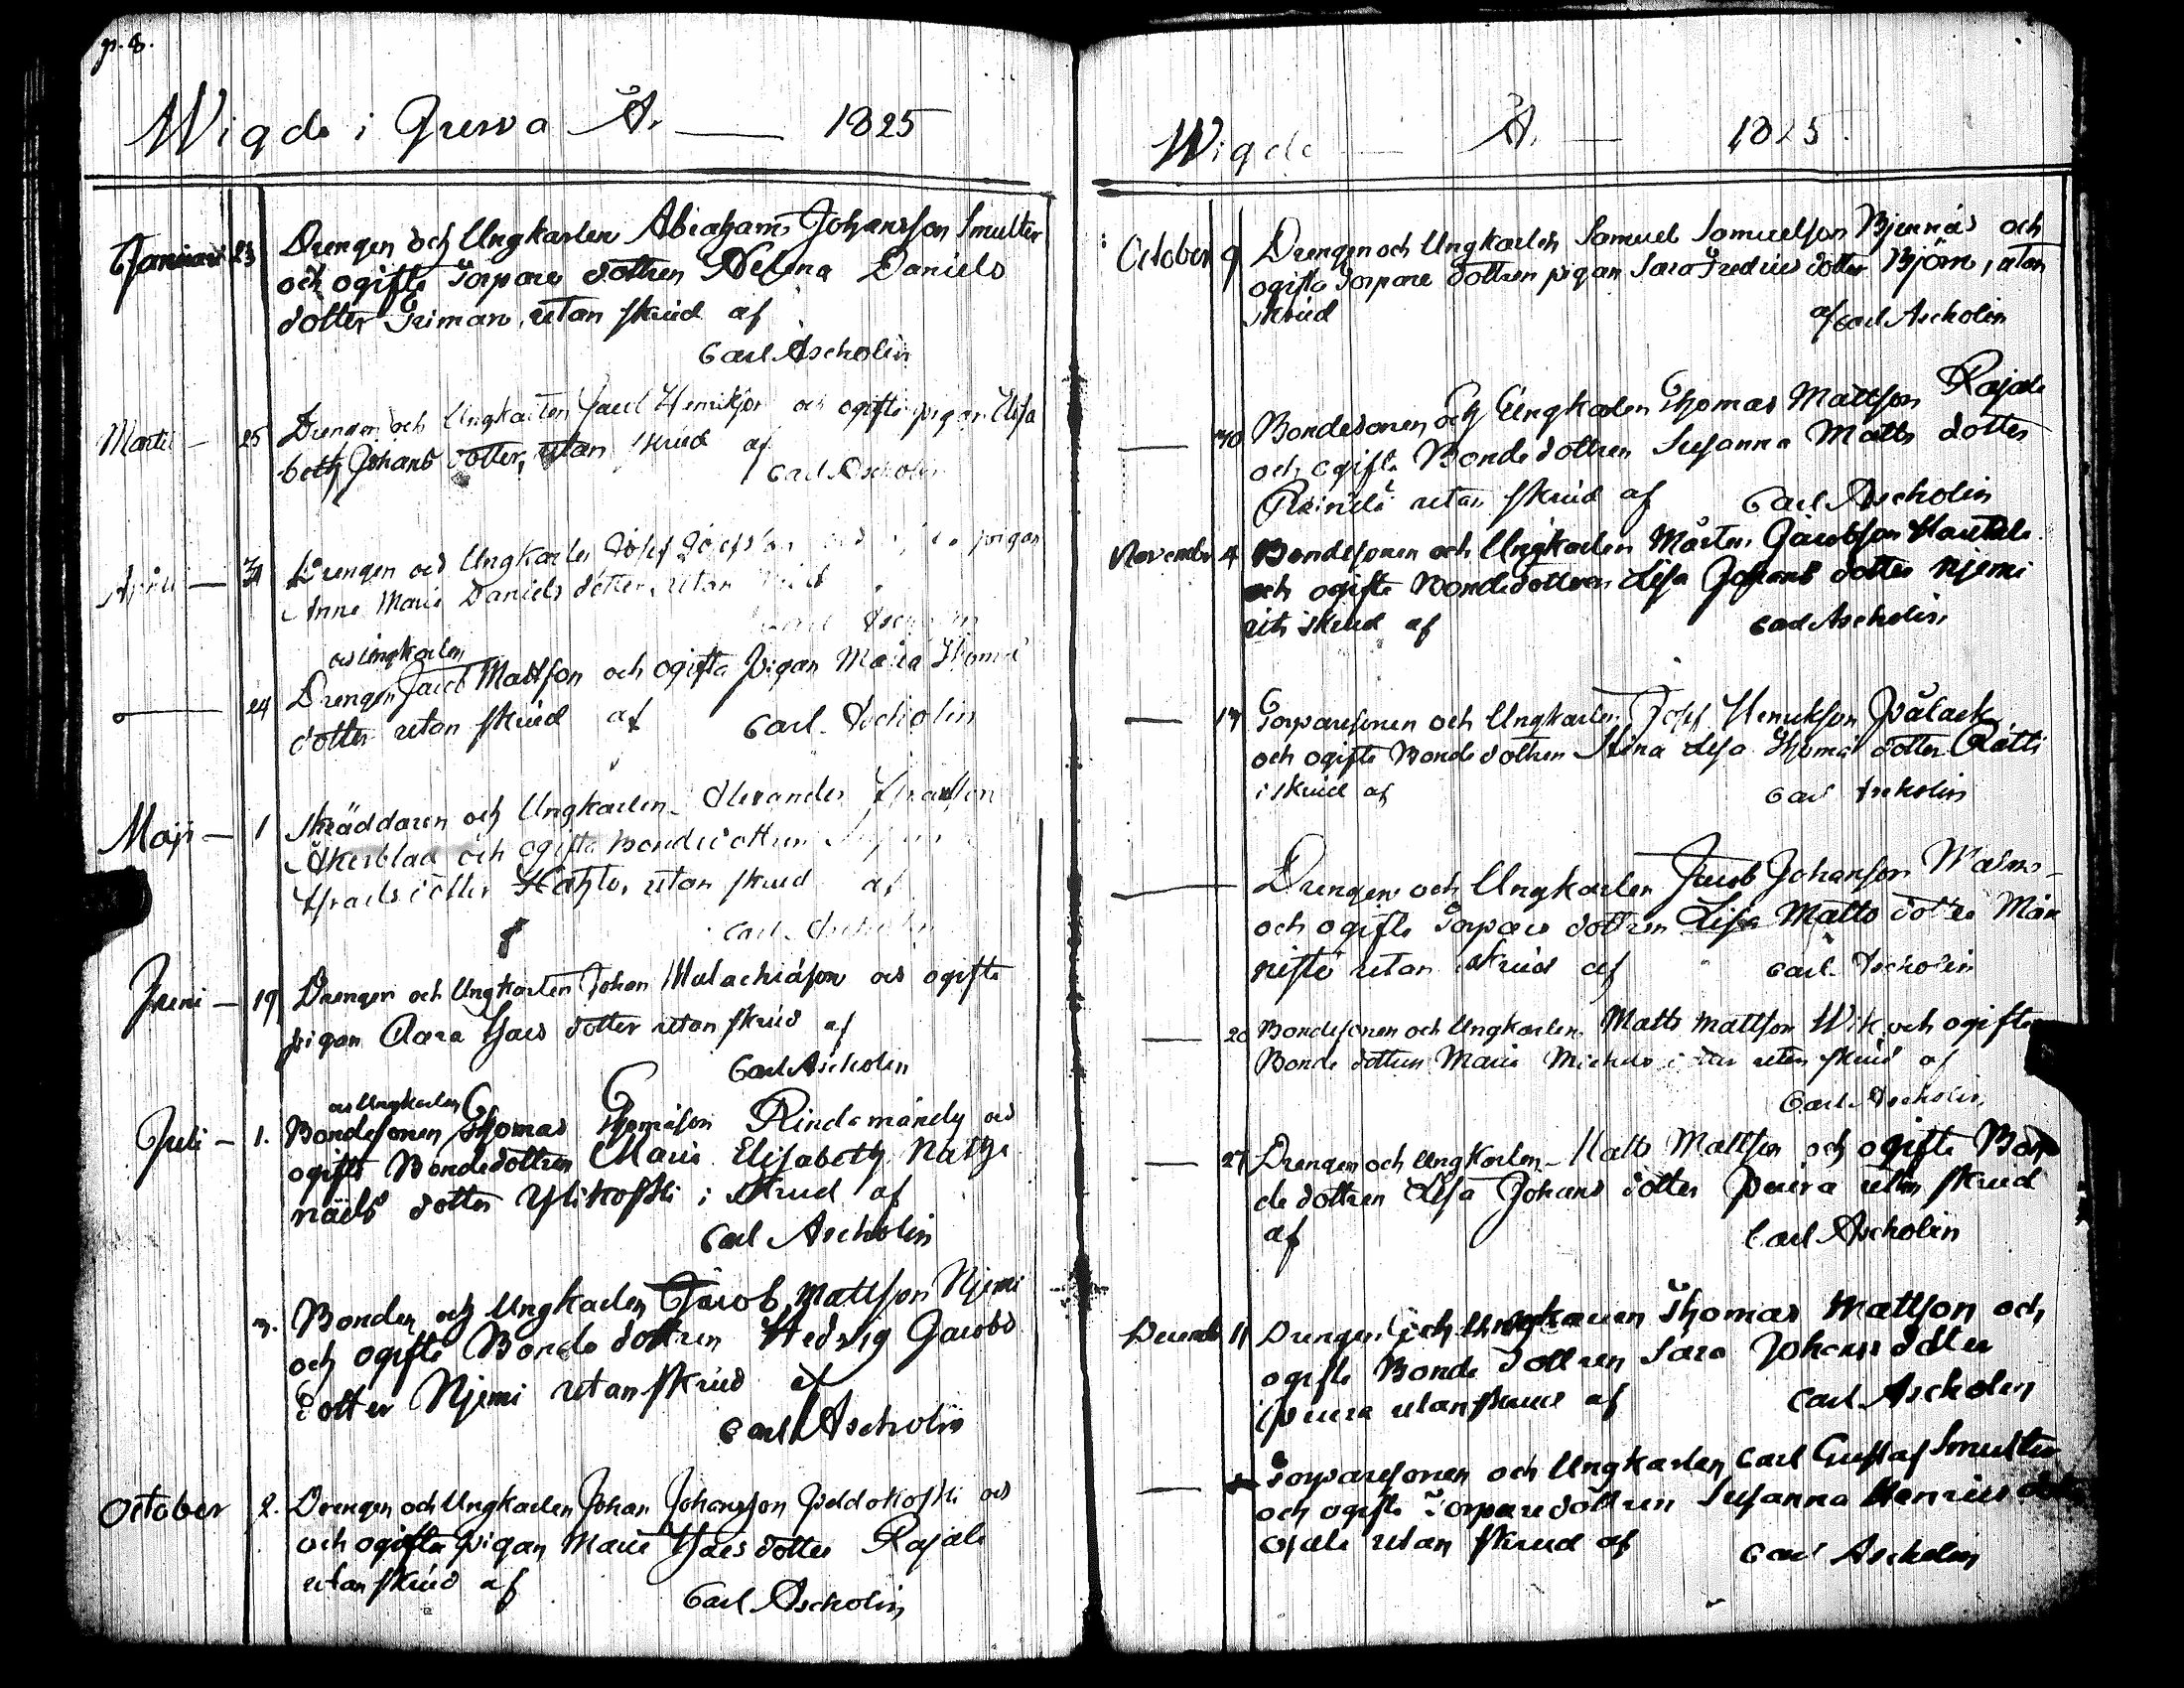 p. 8.
Wigde i Jurva År 1825
Januari 23 Drengen och Ungkarlen Abraham Johansson Smulter
och ogifta Torpare dottren Helena Daniels
dotter Friman, utan skrud af
Carl Ascholin
Martii 25 Drengen och Ungkarlen Jacob Henriksson och ogifta pigan Elisa
beth Johans dotter, utan skrud af
Carl Ascholin
Aprill Drengen och Ungkarlen Josef Josefsson pigan
Anna Maria Daniels dotter utan
Ascholin
och Ungkarlen
24 Drengen Jacob Mattsson och ogifta pigan Maria Thomæ
dotter utan skrud af Carl Ascholin
Maji 1 Skräddaren och Ungkarlen Alexander
Åkerblad och ogifta Bondedottren
Israels dotter utan skrud af
Carl Ascholin
Juni 19 Drengen och Ungkarlen Johan Malachiæson och ogifta
pigan Clara dotter utan skrud af
Carl Ascholin
och Ungkarlen
Juli 1. Bondesonen Thomas Thomæson Rindamändy och
ogifta Bondedottren Maria Elisabeth Natha
naels dotter Ylikoski i skrud af
Carl Ascholin
3. Bonden och Ungkarlen Jacob Mattsson Njemi
och ogifta Bonde dottren Hedvig Jacobs
dotter Njemi utan skrud af
Carl Ascholin
October 2. Drengen och Ungkarlen Johan Johansson Peldokoski och
och ogifta pigan Maria dotter Rajala
utan skrud af
Carl Ascholin
Wigde År 1825.
October 9 Drengen och Ungkarlen Samuel Samuelsson Bjennäs och
ogifta Torpare dottren pigan Sara Fredrics dotter Björn, utan
skrud af Carl Ascholin
30 Bondesonen och Ungkarlen Thomas Mattsson Rajala
och ogifta Bonde dottren Susanna Matts dotter
utan skrud af Carl Ascholin
November 4 Bondesonen och Ungkarlen Mårten Jacobsson Hautala
och ogifta Bondedottren Lisa Johans dotter Njemi
uti skrud af Carl Ascholin
13 Torparesonen och Ungkarlen Josef Henriksson Pålack
och ogifta Bonde dottren Stina Lisa Thomæ dotter Rätti
i skrud af Carl Ascholin
Drengen och Ungkarlen Jacob Johansson Malm
och ogifta Torpare dottren Lisa Matts dotter Män
nistö utan skrud af Carl Ascholin
20 Bondesonen och Ungkarlen Matts Mattsson Wik och ogifta
Bonde dottren Maria Michels dotter utan skrud af
Carl Ascholin
27 Drengen och Ungkarlen Matts Mattsson och ogifta Bon
de dottren Lisa Johans dotter Peura utan skrud
af Carl Ascholin
December 11 Drengen och Ungkarlen Thomas Mattsson och
ogifta Bonde dottren Sara Johans dotter
Peura utan skrud af Carl Ascholin
Torparesonen och Ungkarlen Carl Gustaf Smulter
och ogifta Torparedottren Susanna Henrics dotter
Ojala utan skrud af Carl Ascholin